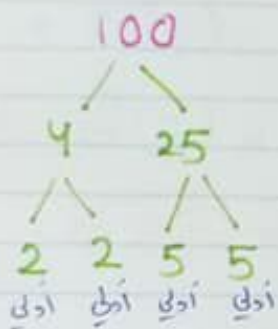 100
4 25
2 2 5 5
أولي أولي أولي أولي